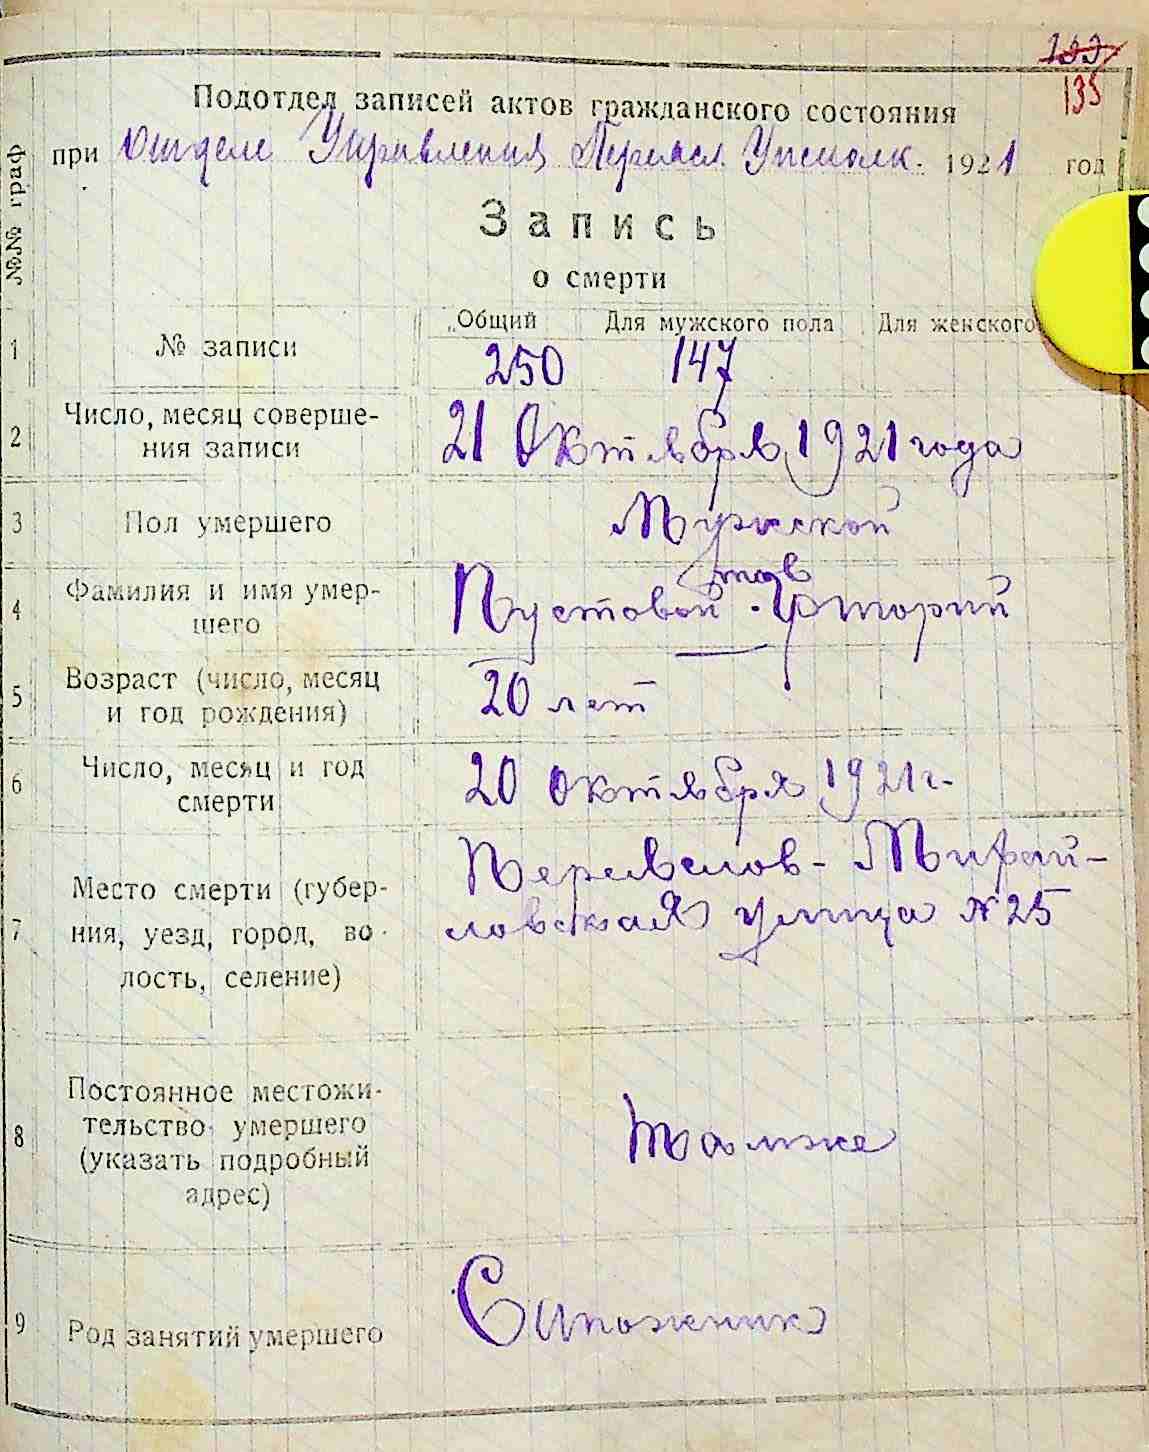 133
135
Подотдел записей актов гражданского состояния
при Отделе Управления Переясл. Уисполк. 1921 год
№№ граф
Запись
о смерти
1 № записи Общий 250 Для мужского пола 147 Для женского
2 Число, месяц соверше-
ния записи 21 Октября 1921 года
3 Пол умершего Мужской
4 Фамилия и имя умер-
шего Пустовой
5 Возраст (число, месяц
и год рождения) 20 лет
6 Число, месяц и год
смерти 20 октября 1921 г.
7 Место смерти (губер-
ния, уезд, город, во-
лость, селение) Переяслов- Михай-
ловская улица № 25
8 Постоянное местожи-
тельство умершего
(указать подробный
адрес) Там же
9 Род занятий умершего Сапожник